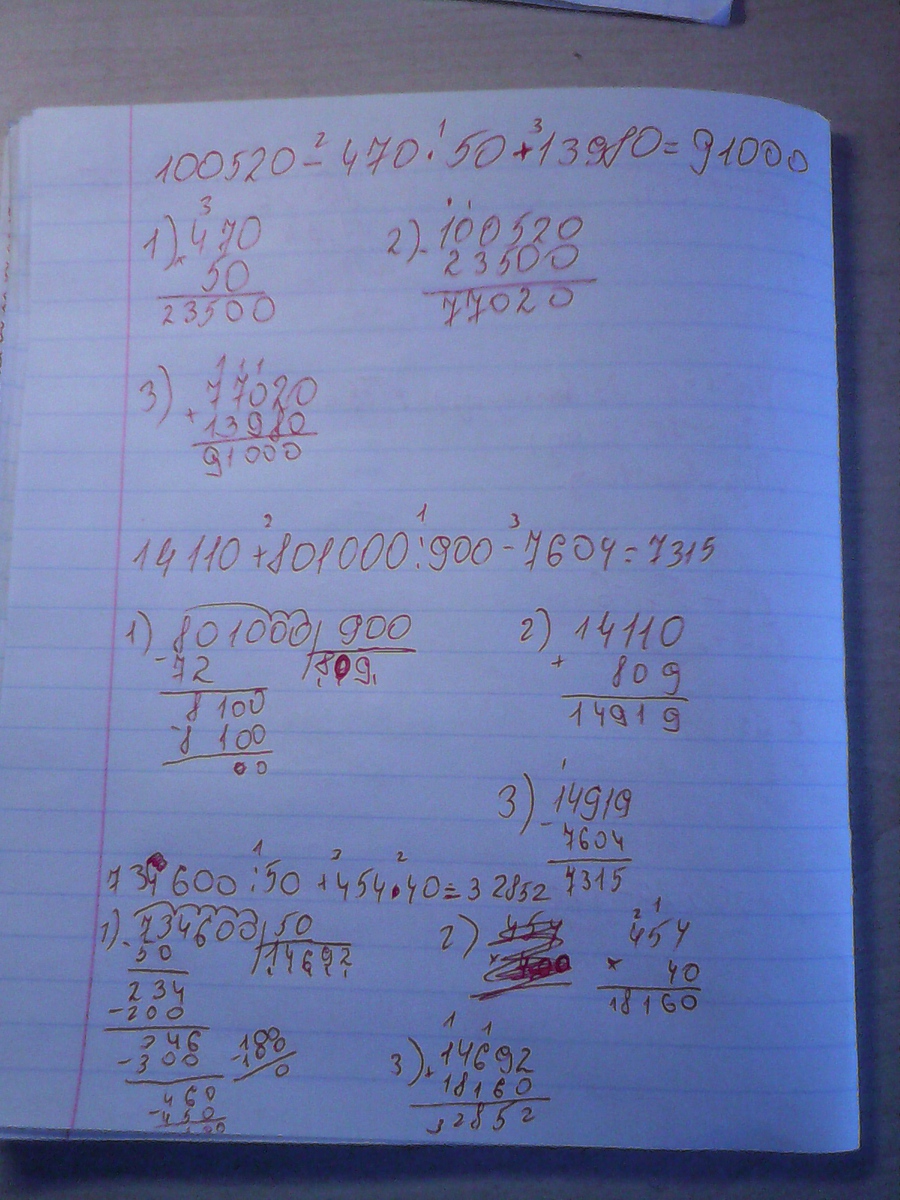 100520 - 470 · 50 + 13980 = 91000
2 1 3
1) 3
470
×
50
23500
2) 100520
-
23500
77020
3) 1 1 1
77020
+
13980
91000
14110 + 801000 : 900 - 7604 = 7315
2 1 3
1) 801000 | 900
-72 | 809
8100
-8100
00
2) 14110
+
809
14919
3) 14919
-
7604
7315
734600 : 50 + 454 · 40 = 32852
1 3 2
1) 734600 | 50
-50 | 14692
234
-200
346
-300
460
-450
100
-100
0
2) 2 1
454
×
40
18160
3) 1 1
14692
+
18160
32852